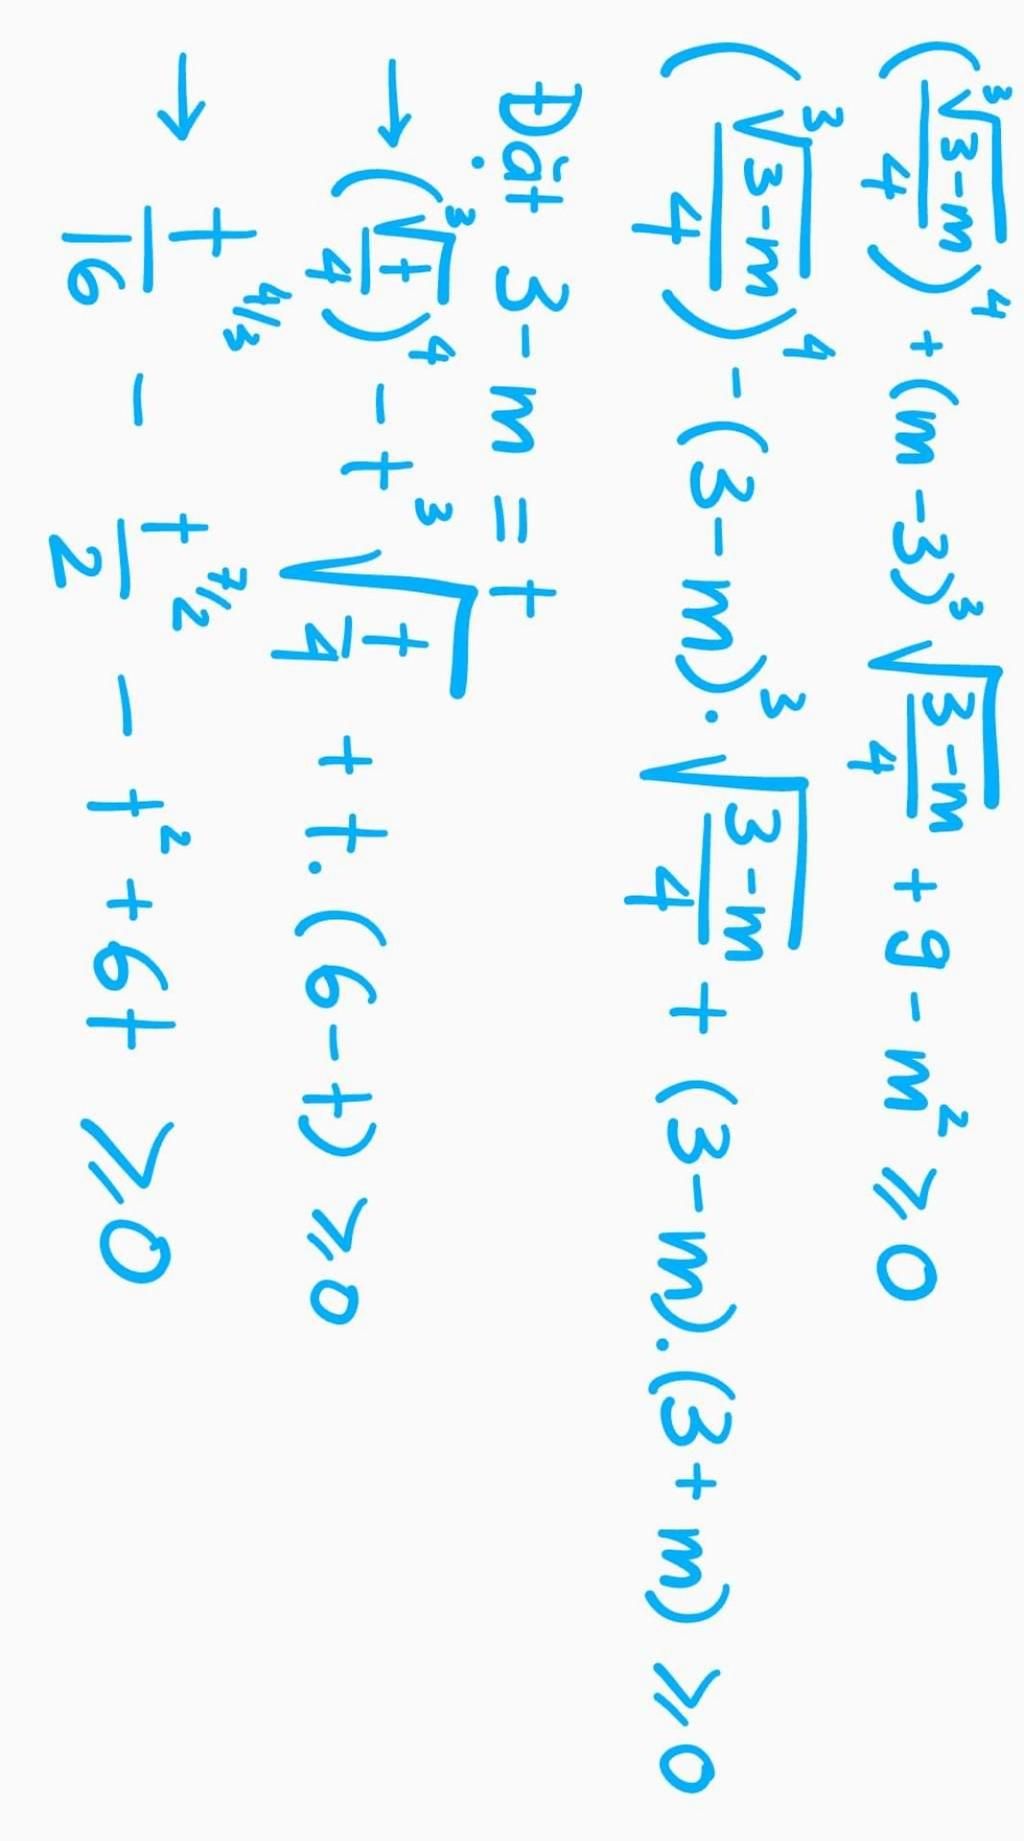 (∛(3-m)/4)⁴ + (m-3)³√((3-m)/4) + 9 - m² ≥ 0
(∛(3-m)/4)⁴ - (3-m)³·√((3-m)/4) + (3-m).(3+m) ≥ 0
Đặt 3-m = t
→ (∛t/4)⁴ - t³√(t/4) + t.(6-t) ≥ 0
→ t^(4/3)/16 - t^(7/2)/2 - t² + 6t ≥ 0